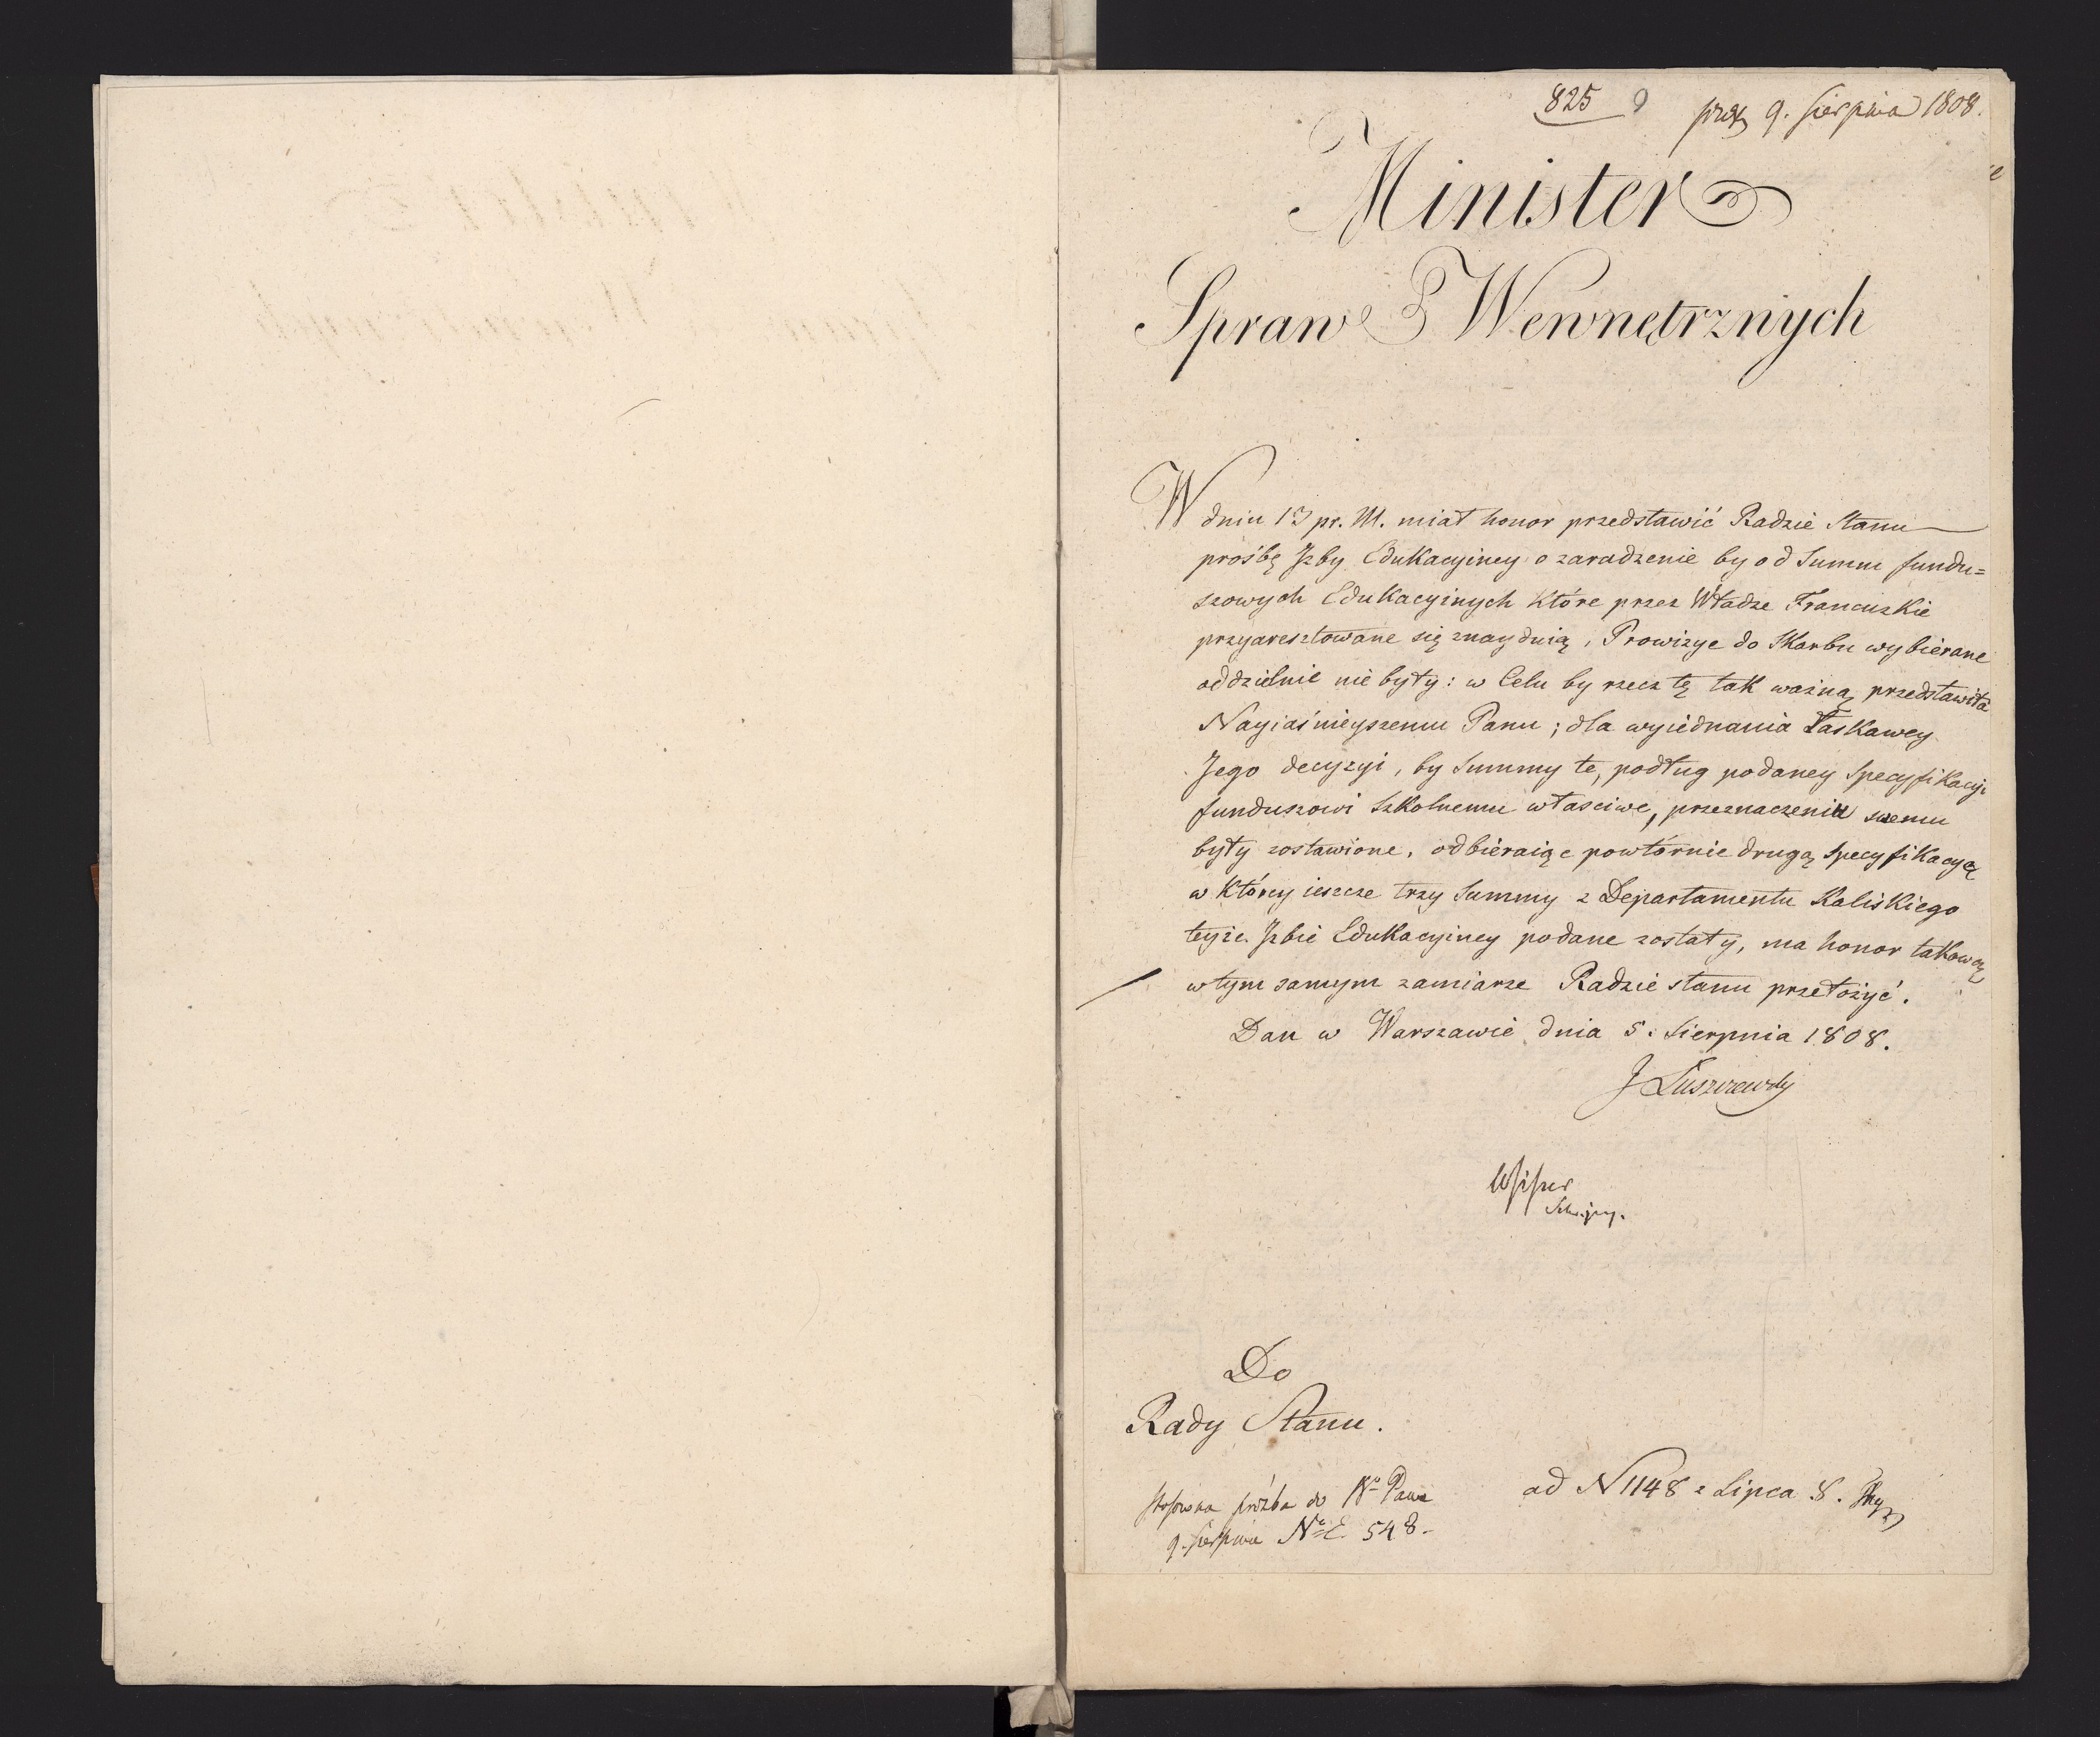 825 9 prez 9. Sierpnia 1808.
Minister
Spraw Wewnętrznych
W dniu 13 pr. M. miał honor przedstawić Radzie Stanu
prośbę Jzby Edukacyiney o zaradzenie by od Summ fundu=
szowych Edukacyinych które przez Władze Francuzkie
przyaresztowane się znayduią, Prowizye do Skarbu wybierane
oddzielnie nie były: w Celu by rzecz tę tak ważną przedstawiła
Nayiaśnieyszemu Panu; dla wyiednania Łaskawey
Jego decyzyi, by Summy te, podług podaney Specyfikacyi
funduszowi Szkolnemu właściwe, przeznaczeniu swemu
były zostawione, odbieraiąc powtórnie drugą Specyfikacyą
w którey ieszcze trzy Summy z Departamentu Kaliskiego
teyże Jzbie Edukacyiney podane zostały, ma honor takową
w tym samym zamiarze Radzie stanu przełożyć.
Dan w Warszawie dnia 5. Sierpnia 1808.
J Łuszczewski
Do
Rady Stanu.
stosowna prózba do Nº Pana
9. Sierpnia Nº E. 548.
ad N 1148 z Lipca 8.